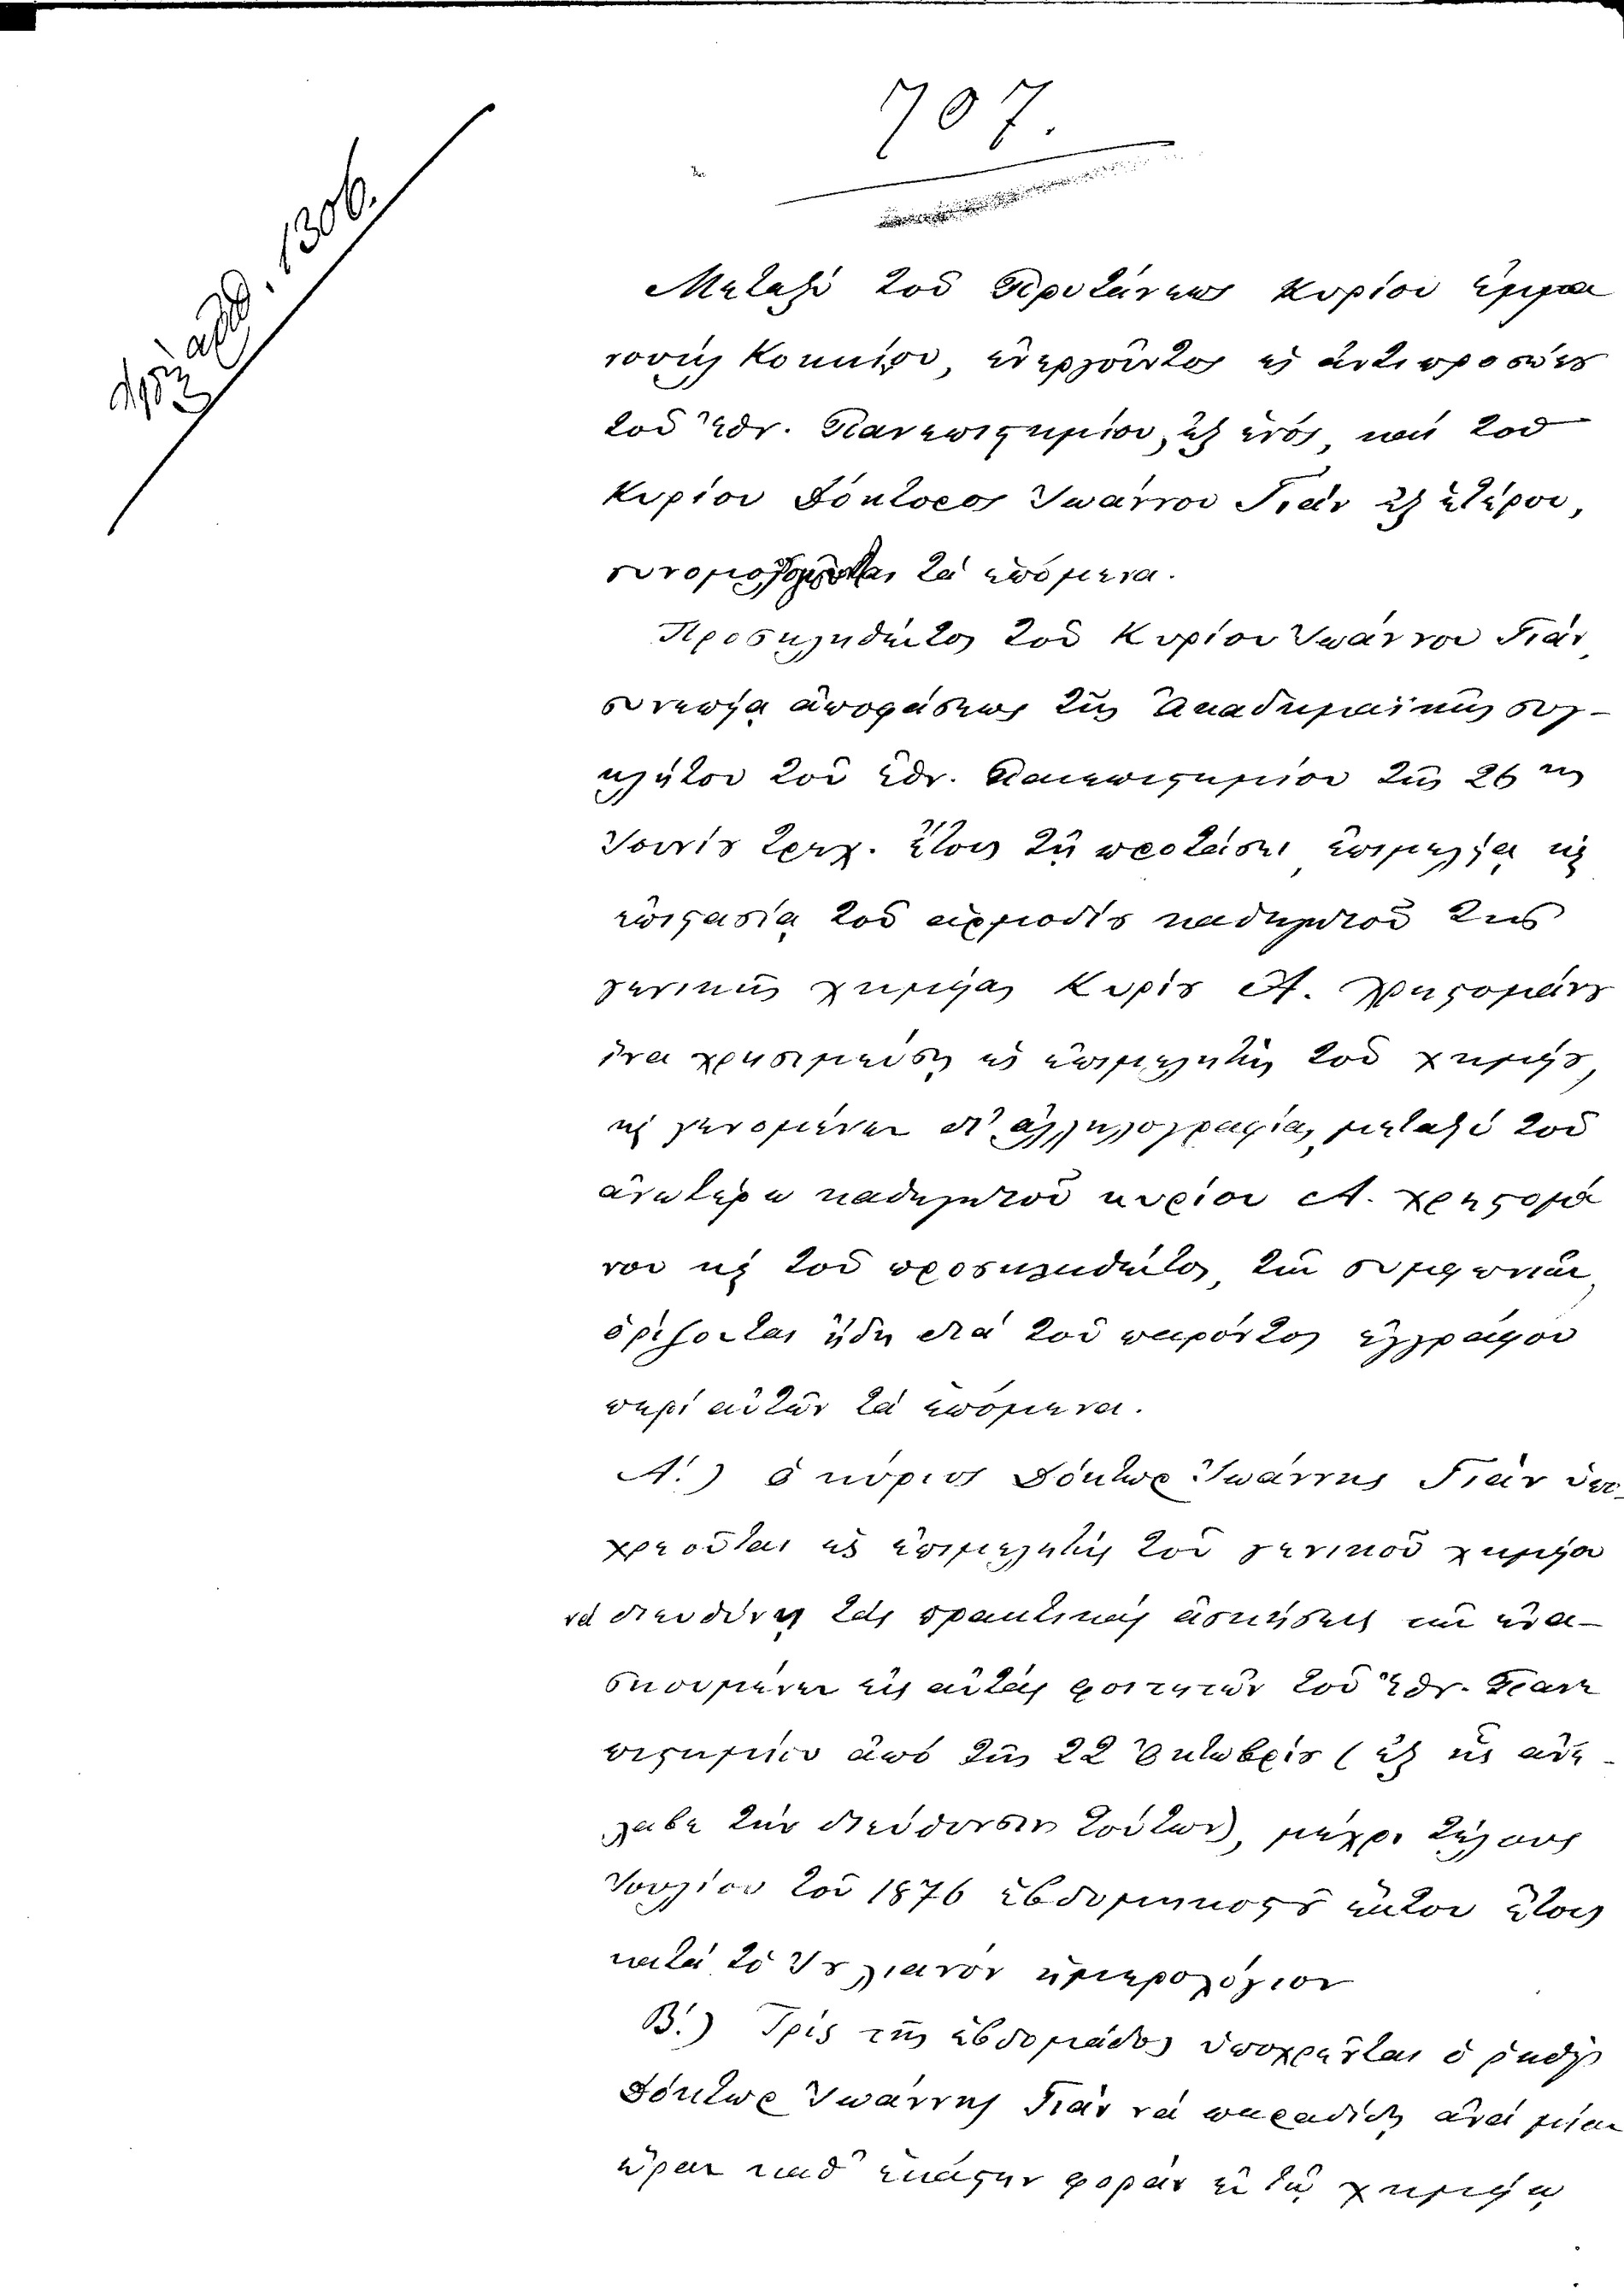 707.
ἀριθ. 1306.
Μεταξὺ τοῦ Πρυτάνεως Κυρίου Ἐμμα
νουὴλ Κοκκίνου, ἐνεργοῦντος ὡς ἀντιπροσώπου
τοῦ Ἐθν. Πανεπιστημίου, ἐξ ἑνός, καὶ τοῦ
Κυρίου Δόκτορος Ἰωάννου Γιὰν ἐξ ἑτέρου,
συνομολογοῦνται τὰ ἑπόμενα.
Προσκληθέντος τοῦ Κυρίου Ἰωάννου Γιὰν,
συνεπείᾳ ἀποφάσεως τῆς Ἀκαδημαϊκῆς συγ-
κλήτου τοῦ Ἐθν. Πανεπιστημίου τῆς 26ης
Ἰουνίου τρεχ. ἔτους τῇ προτάσει, ἐπιμελείᾳ καὶ
ἐπιστασίᾳ τοῦ ἁρμοδίου καθηγητοῦ τῆς
γενικῆς χημείας Κυρίου Α. Χρηστομάνου
ἵνα χρησιμεύσῃ ὡς ἐπιμελητὴς τοῦ χημείου,
καὶ γενομένων δι' ἀλληλογραφίας, μεταξὺ τοῦ
ἀνωτέρω καθηγητοῦ κυρίου Α. Χρηστομά
νου καὶ τοῦ προσκληθέντος, τῶν συμφωνιῶν,
ὁρίζονται ἤδη διὰ τοῦ παρόντος ἐγγράφου
περὶ αὐτῶν τὰ ἑπόμενα.
Α.) ὁ κύριος Δόκτωρ Ἰωάννης Γιὰν ὑπο-
χρεοῦται ὡς ἐπιμελητὴς τοῦ γενικοῦ χημείου
νὰ διευθύνῃ τὰς πρακτικὰς ἀσκήσεις τῶν ἐνα-
σκουμένων εἰς αὐτὰς φοιτητῶν τοῦ Ἐθν. Πανε
πιστημίου ἀπὸ τῆς 22 Ὀκτωβρίου (ἐξ ἧς ἀνέ-
λαβε τὴν διεύθυνσιν τούτων), μέχρι τέλους
Ἰουλίου τοῦ 1876 ἑβδομηκοστοῦ ἕκτου ἔτους
κατὰ τὸ Ἰουλιανὸν ἡμερολόγιον
Β.) Τρὶς τῆς ἑβδομάδος ὑποχρεοῦται ὁ ῥηθεὶς
Δόκτωρ Ἰωάννης Γιὰν νὰ παραδίδῃ ἀνὰ μίαν
ὥραν καθ' ἑκάστην φορὰν ἐν τῷ χημείῳ